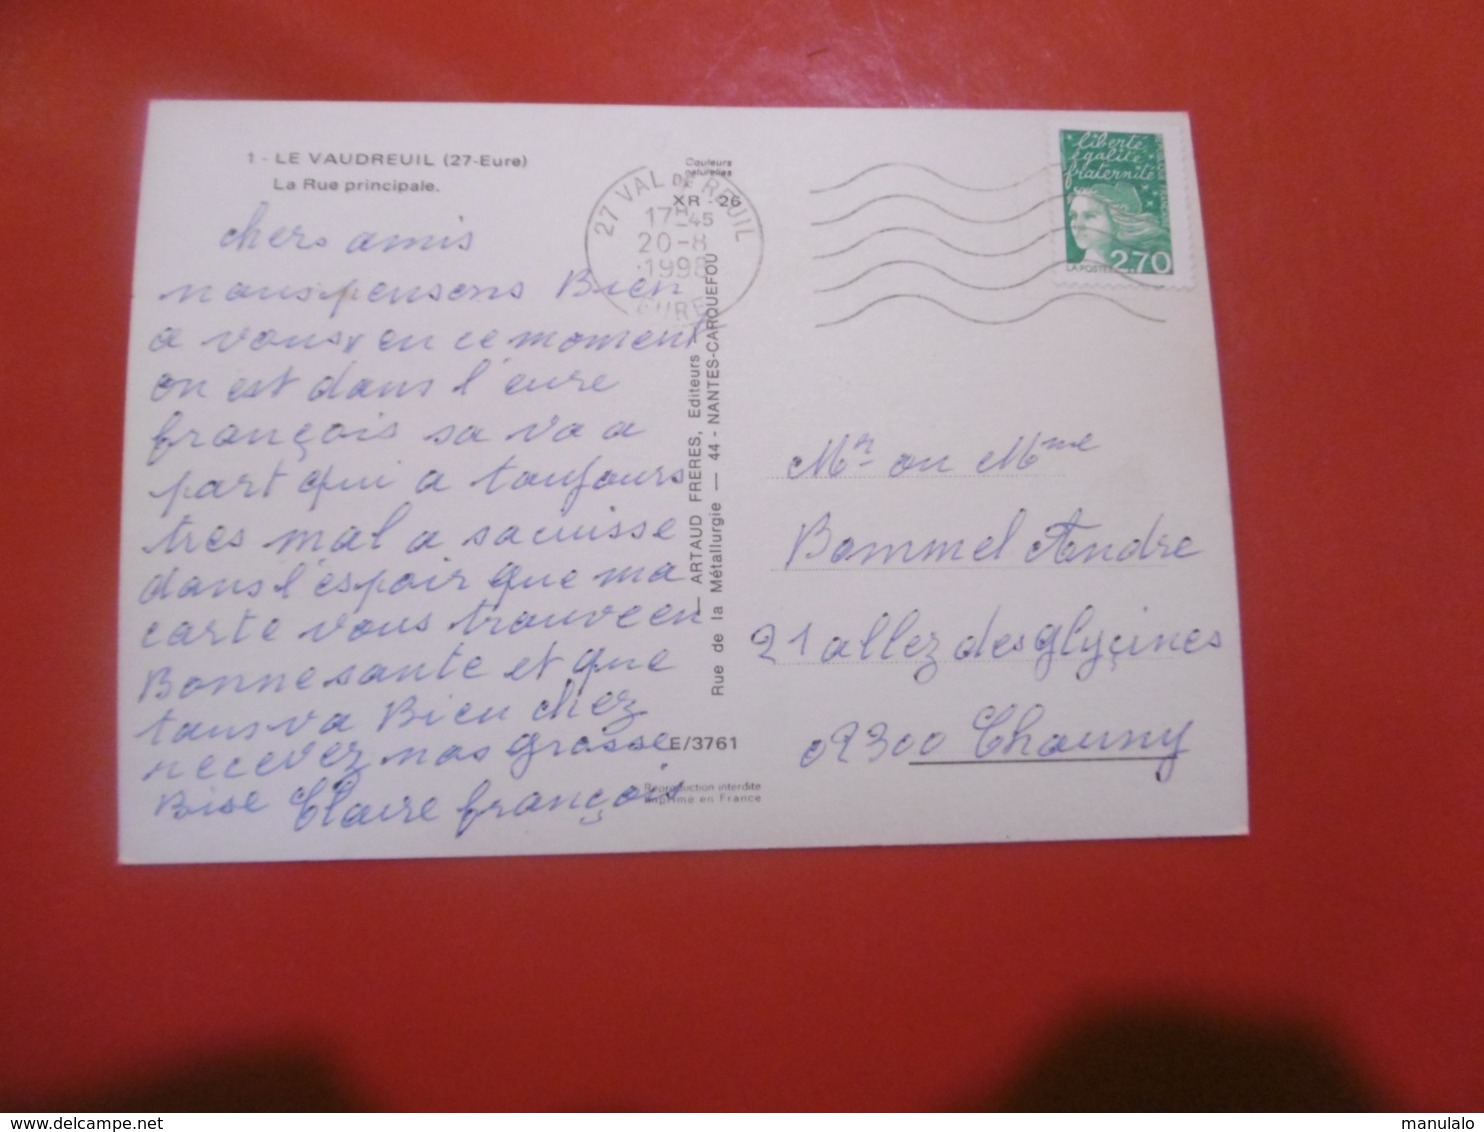 1 - LE VAUDREUIL (27-Eure)
La Rue principale.
chers amis
nous pensons Bien
a vous en ce moment
on est dans l'eure
françois sa va a
part qui a toujours
tres mal a sa cuisse
dans l'espoir que ma
carte vous trouve en
Bonne sante et que
tous va Bien chez
recevez nos grosse
Bise Claire françois
Couleurs
naturelles
XR 26
27 VAL DE REUIL
17H45
20-8
1998
EURE
ARTAUD FRERES, Editeurs —
Rue de la Métallurgie — 44 - NANTES-CARQUEFOU
E/3761
Reproduction interdite
Imprimé en France
liberté
égalité
fraternité
LA POSTE
2,70
Mr ou Mme
Bommel Andre
21 allez des glycines
02300 Chauny
www.delcampe.net
manulalo